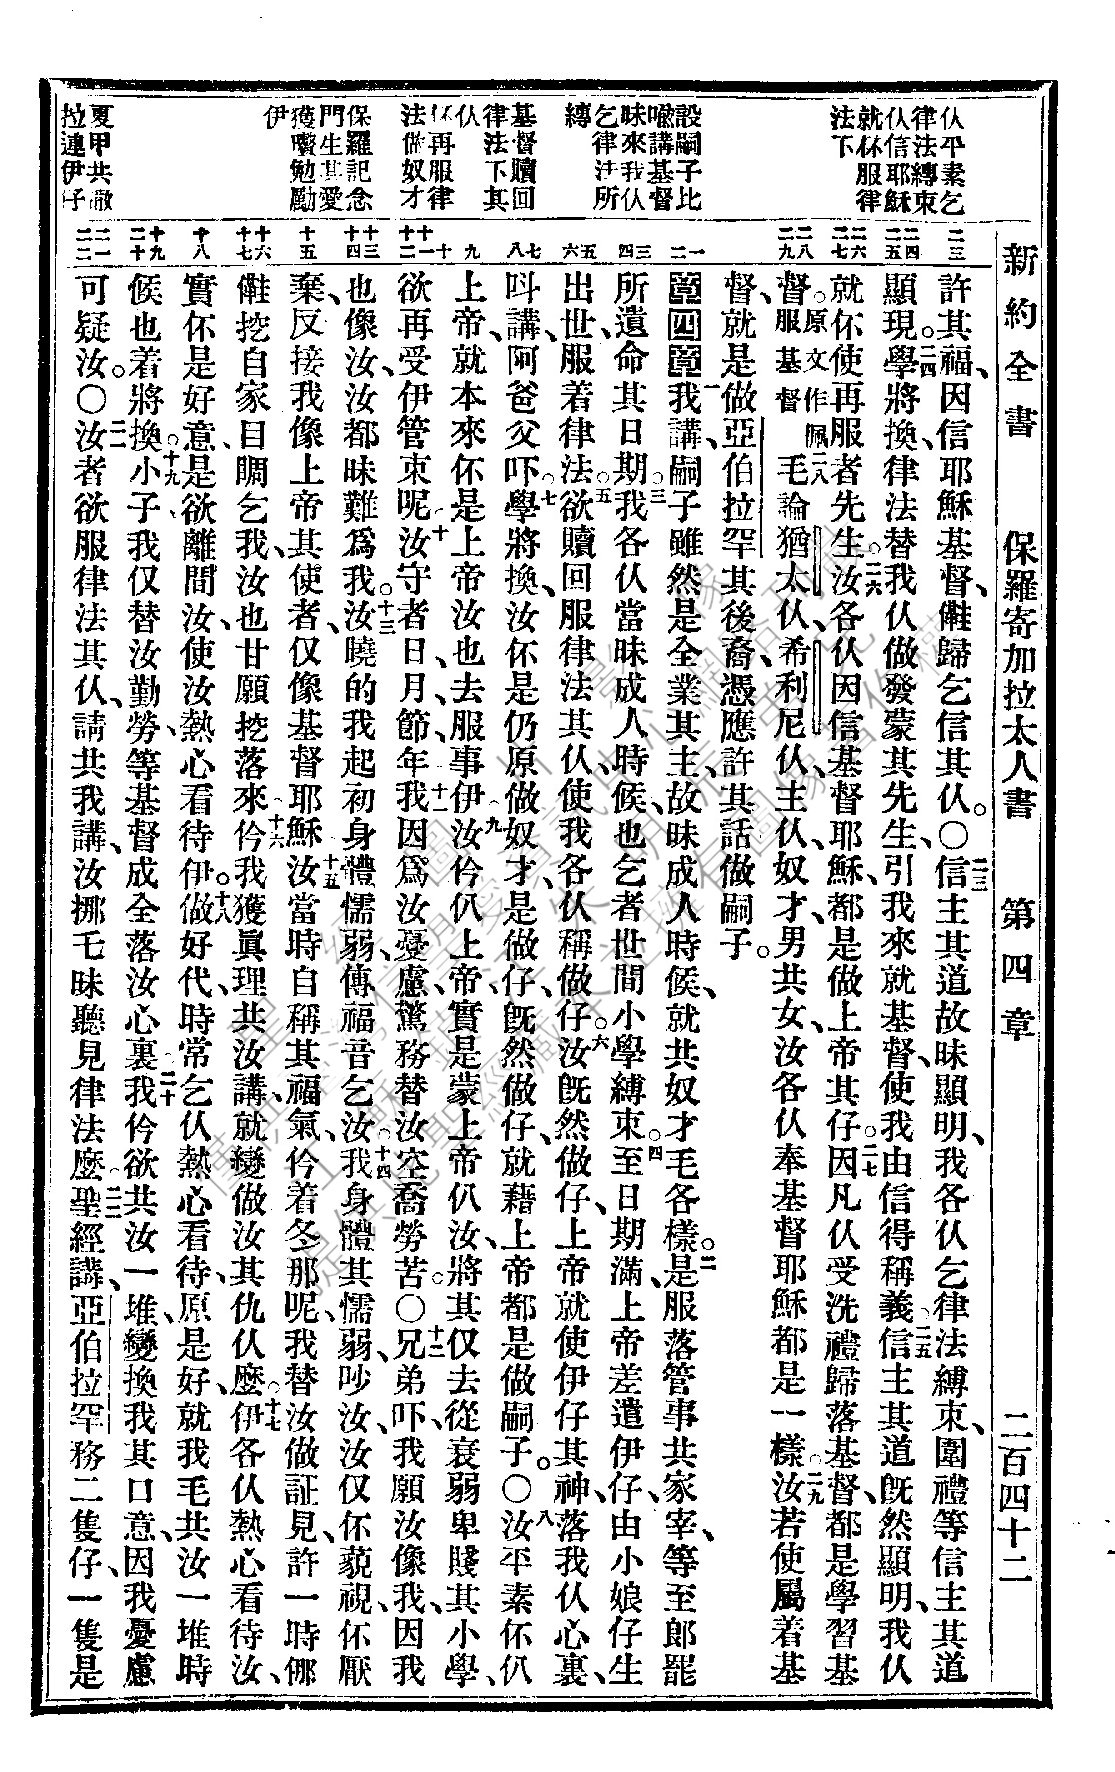 新約全書　保羅寄加拉太人書　第四章　二百四十二
仫平素乞
律法縛束
仫信耶穌
就伓服律
法下
設嗣子比
喩講基督
昧來我仫
乞律法所
縛
基督贖回
律法下其
仫
伓再服律
法做奴才
保羅記念
門生其愛
獲囑勉勵
伊
夏甲共撒
拉連伊子
許其福、因信耶穌基督、儺歸乞信其仫。〇二三信主其道故昧顯明、我各仫乞律法縛束、圍禮等信主其道
顯現。二四學將換、律法替我仫做發蒙其先生、引我來就基督、使我由信得稱義。二五信主其道旣然顯明、我仫
就伓使再服者先生。二六汝各仫因信基督耶穌、都是做上帝其仔。二七因凡仫受洗禮歸落基督、都是學習基
督。原文作佩服基督二八毛論猶太仫、希利尼仫、主仫、奴才、男共女、汝各仫奉基督耶穌都是一樣。二九汝若使屬着基
督、就是做亞伯拉罕其後裔、憑應許其話做嗣子。
第四章一我講、嗣子雖然是全業其主、故昧成人時候、就共奴才毛各樣。二是服落管事共家宰、等至郎罷
所遺命其日期。三我各仫當昧成人時候、也乞者世間小學縛束。四至日期滿、上帝差遣伊仔、由小娘仔生
出世、服着律法。五欲贖回服律法其仫、使我各仫稱做仔。六汝旣然做仔、上帝就使伊仔其神、落我仫心裏、
呌講、阿爸父吓。七學將換、汝伓是仍原做奴才、是做仔、旣然做仔、就藉上帝都是做嗣子。〇八汝平素伓仈
上帝、就本來伓是上帝汝也去服事伊。九汝仱仈上帝、實是蒙上帝仈汝、將其仅去從衰弱卑賤其小學、
欲再受伊管束呢。十汝守者日、月、節、年。十一我因爲汝憂慮、驚務替汝空喬勞苦。〇十二兄弟吓、我願汝像我、因我
也像汝、汝都昧難爲我。十三汝曉的我起初身體懦弱、傳福音乞汝。十四我身體其懦弱、吵汝、汝仅伓藐視、伓厭
棄、反接我像上帝其使者、仅像基督耶穌。十五汝當時自稱其福氣、仱着冬那呢、我替汝做証見、許一時倻
儺挖自家目睭乞我、汝也甘願挖落來。十六仱我獲眞理共汝講、就變做汝其仇仫麼。十七伊各仫熱心看待汝、
實伓是好意、是欲離間汝、使汝熱心看待伊。十八做好代、時常乞仫熱心看待、原是好、就我毛共汝一堆時
候也着。十九將換小子、我仅替汝勤勞、等基督成全落汝心裏。二十我仱欲共汝一堆、變換我其口意、因我憂慮
可疑汝。〇二一汝者欲服律法其仫、請共我講、汝挪乇昧聽見律法麼。二二聖經講、亞伯拉罕務二隻仔、一隻是